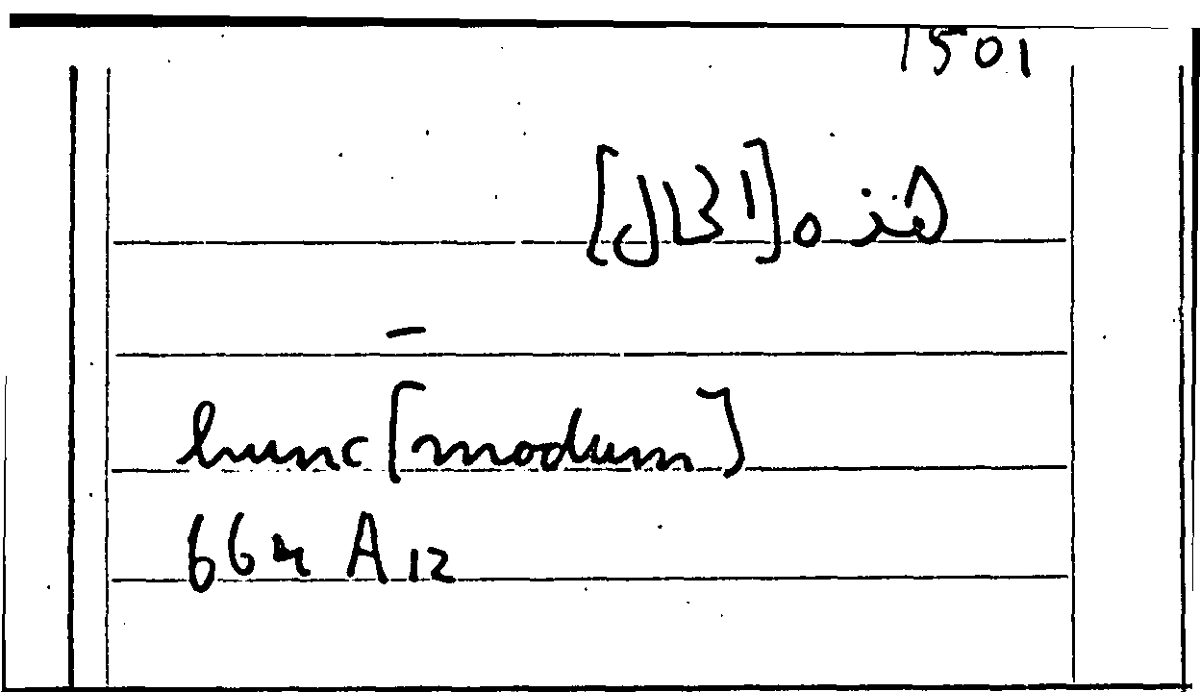 1501
هذه [الحال]
–
hunc [modum]
664 A 12